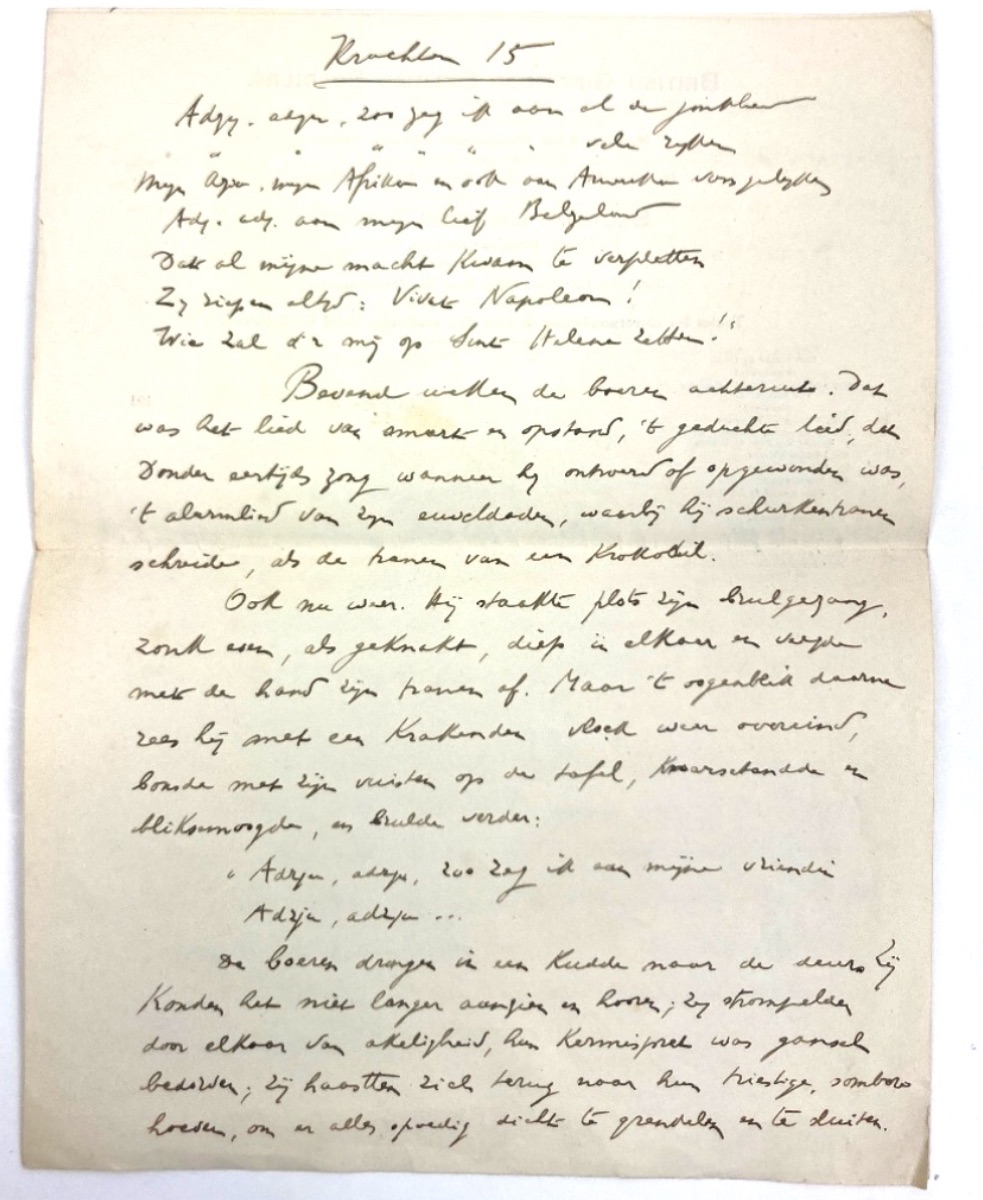 Krachten 15
Adzju, adzju, zoo zeg ik aan al de jonkheid
" " " " " vele zotten
Mijn Azia, mijn Afrika en ook aan Amerika
Adj. adj. aan mijn lief Belgeland
Dat al mijne macht kwam te verpletten
Zij riepen altijd: Vivat Napoleon!
Wie zal d'r mij op Sint Helena zetten!"
Bevend weken de boeren achteruit. Dat
was het lied van smart en opstand, 't geduchte lied, dat
Donder eertijds zong wanneer hij ontroerd of opgewonden was,
't alarmlied van zijn euveldaden, waarbij hij schurkentranen
schreide, als de tranen van een Krokodil.
Ook nu weer. Hij staakte plots zijn brulgezang,
zonk even, als geknakt, diep in elkaar en veegde
met de hand zijn tranen af. Maar 't oogenblik daarna
rees hij met een Krakenden vloek weer overeind,
bonsde met zijn vuisten op de tafel, Knarsetandde en
bliksemoogde, en brulde verder:
" Adzju, adzju, zoo zeg ik aan mijne vriendin
Adzju, adzju ...
De boeren drongen in een Kudde naar de deur. Zij
Konden het niet langer aanzien en hooren; zij strompelden
door elkaar van akeligheid, hun Kermispret was gansch
bedorven; zij haastten zich terug naar hun triestige, sombere
hoeven, om er alles spoedig dicht te grendelen en te sluiten.